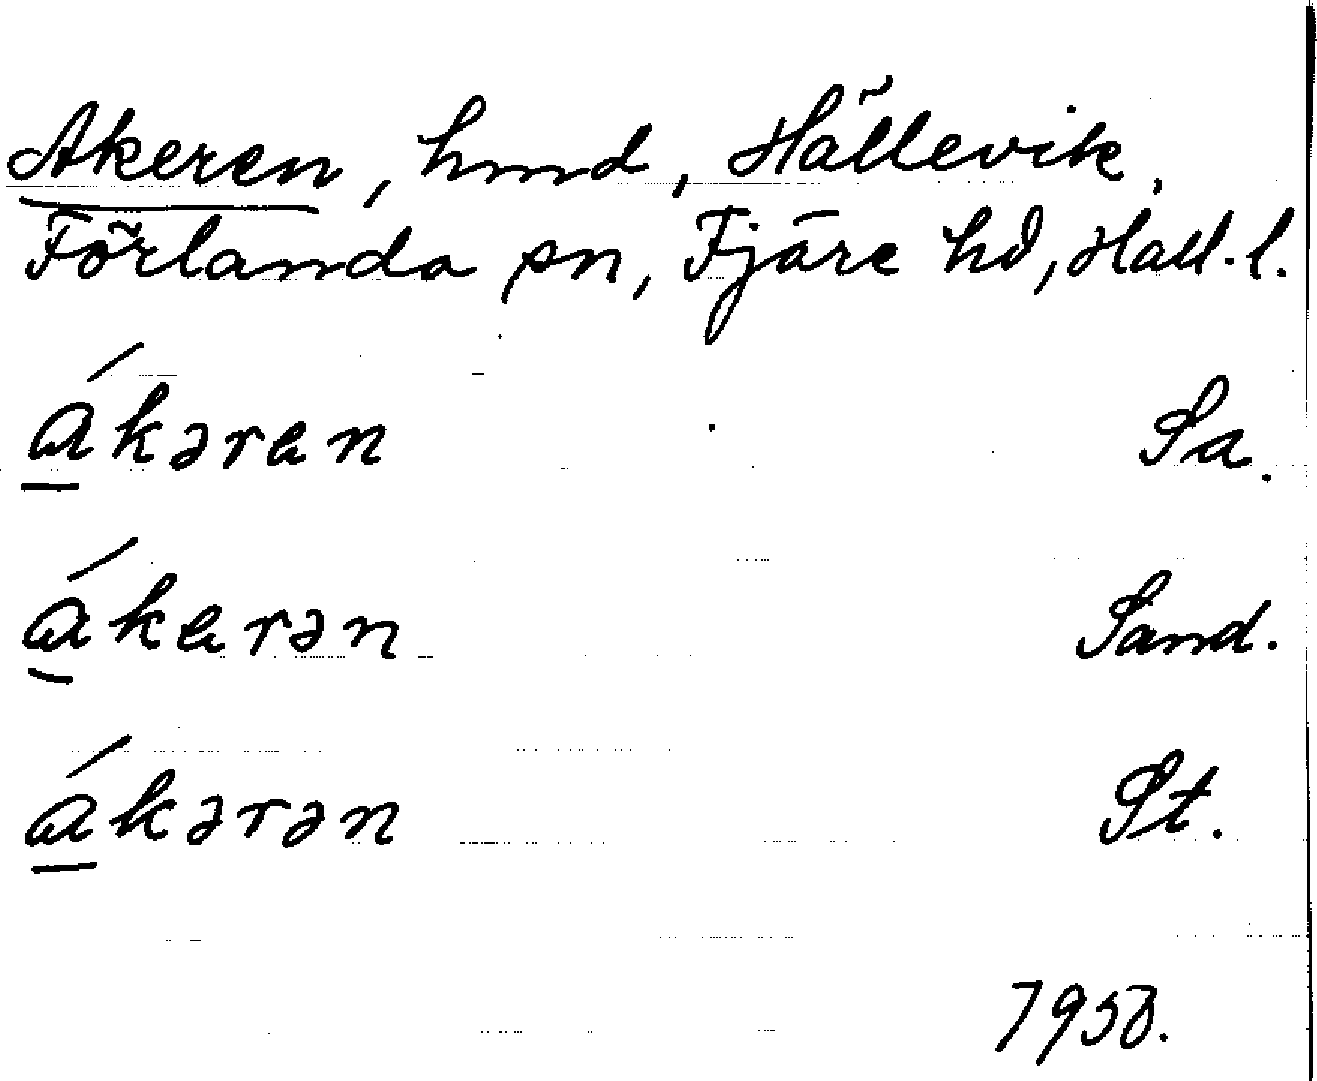 Akeren, hmd, Hällevik,
Förlanda sn, Fjäre hd, Hall. l.
ákəren Sa.
ákerən Sand.
ákərən St.
1958.